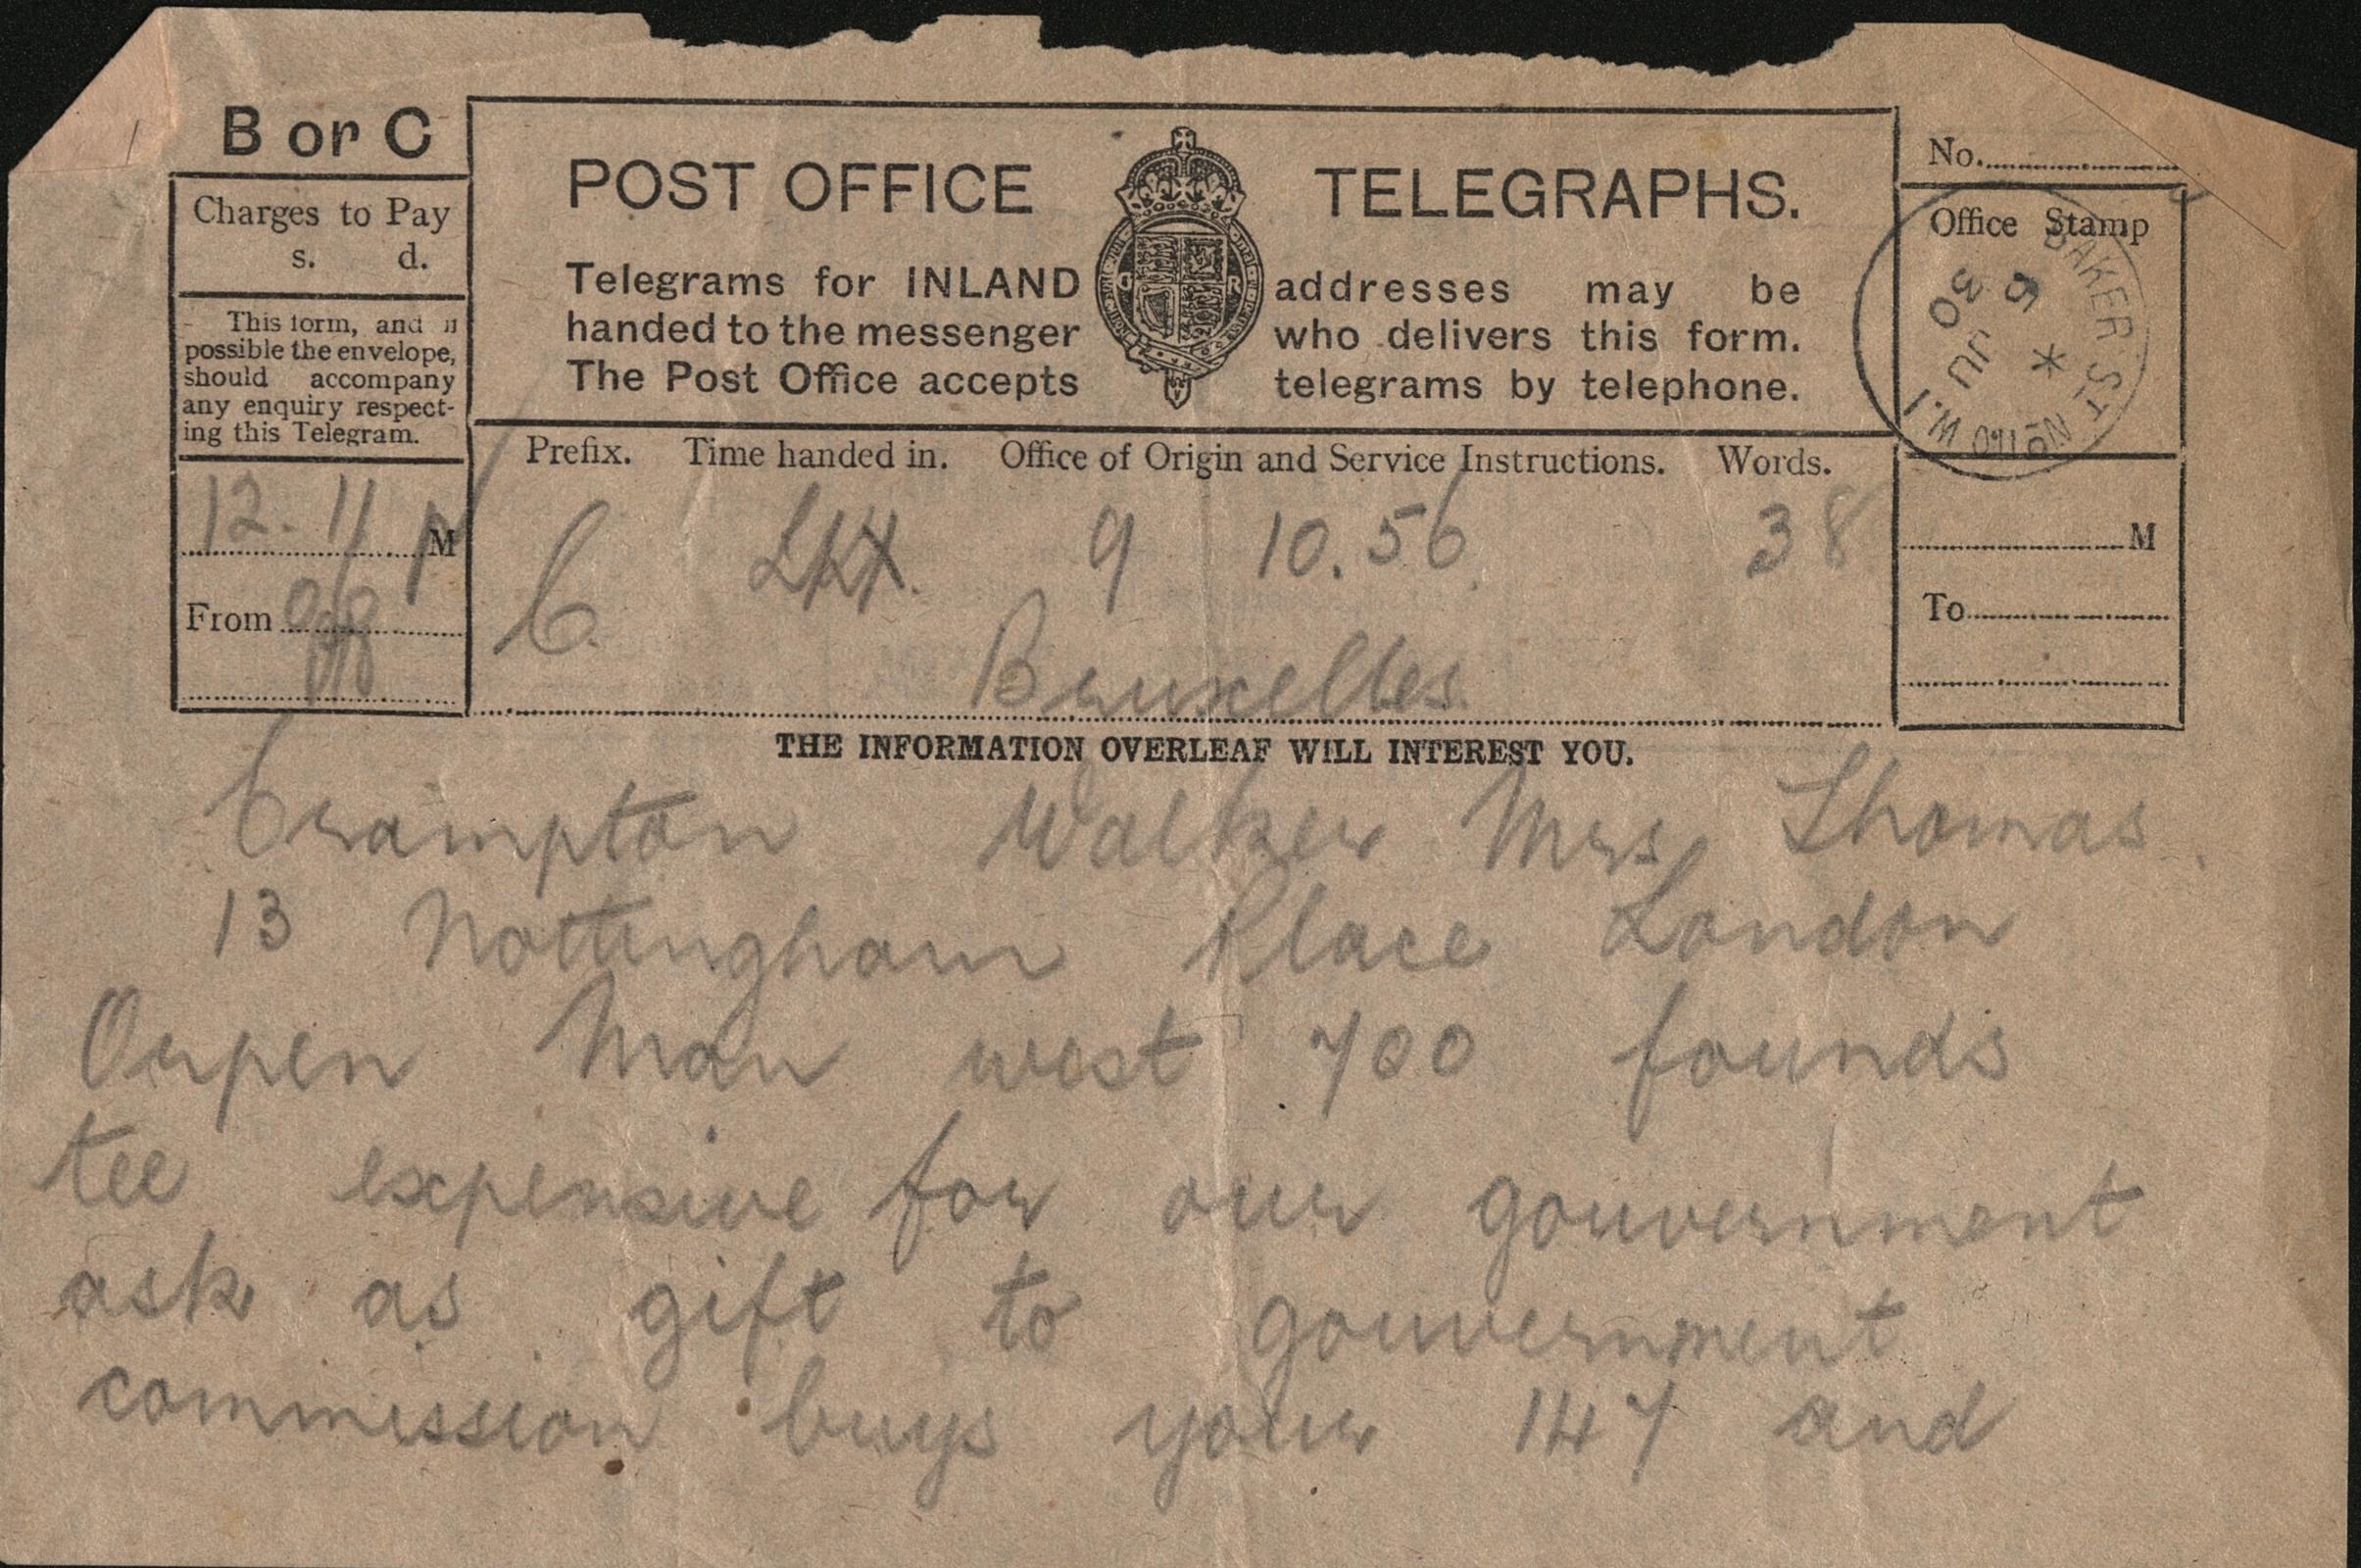 B or C
Charges to Pay
s. d.
This form, and if
possible the envelope,
should accompany
any enquiry respect-
ing this Telegram.
12.11 PM
From
POST OFFICE TELEGRAPHS.
Telegrams for INLAND addresses may be
handed to the messenger who delivers this form.
The Post Office accepts telegrams by telephone.
G R
No.
Office Stamp
BAKER ST
W.1
6 JU 30
M
To
Prefix. Time handed in. Office of Origin and Service Instructions. Words.
C. 9 10.56 38
Bruxelles
THE INFORMATION OVERLEAF WILL INTEREST YOU.
Crampton Walker Mrs Thomas.
13 Nottingham Place London
Orpen Man west 700 founds
tee expensive for our gouvernment
ask as gift to gouvernment
commission buys your 147 and